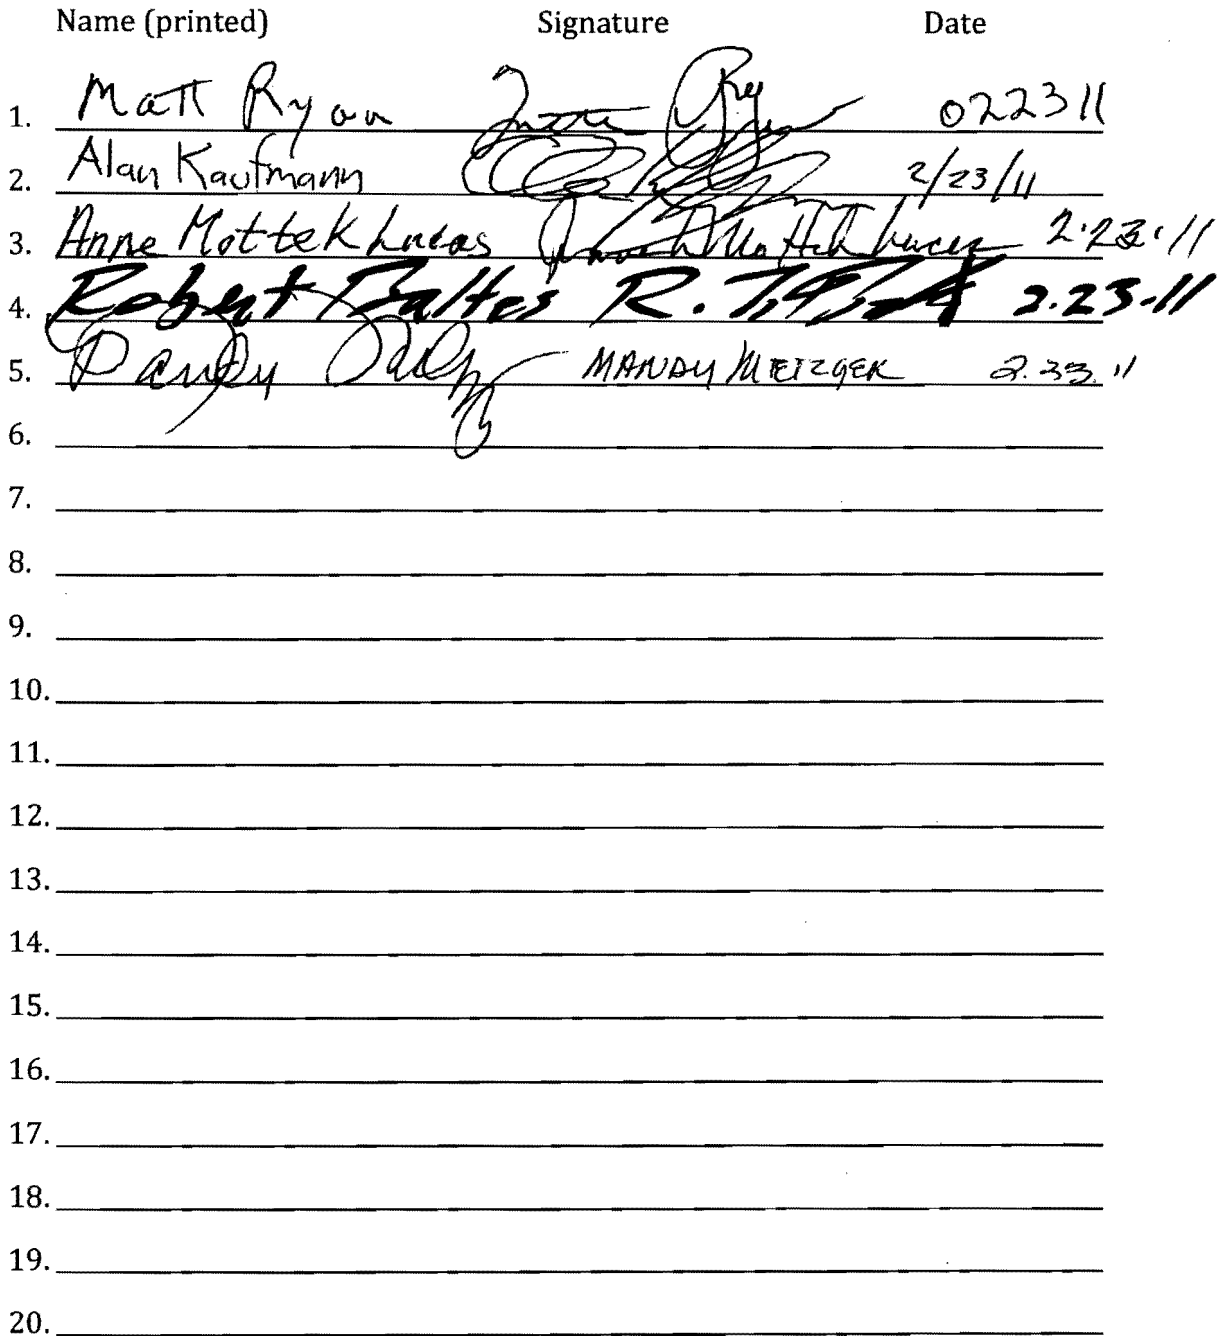 Name (printed) Signature Date
1. Matt Ryan Ryan 022311
2. Alan Kaufmann 2/23/11
3. Anne Mottek Lucas Mottek Lucas 2.23.11
4. Robert Baltes R. 2.23.11
5. MANDY METZGER 2.23.11
6.
7.
8.
9.
10.
11.
12.
13.
14.
15.
16.
17.
18.
19.
20.